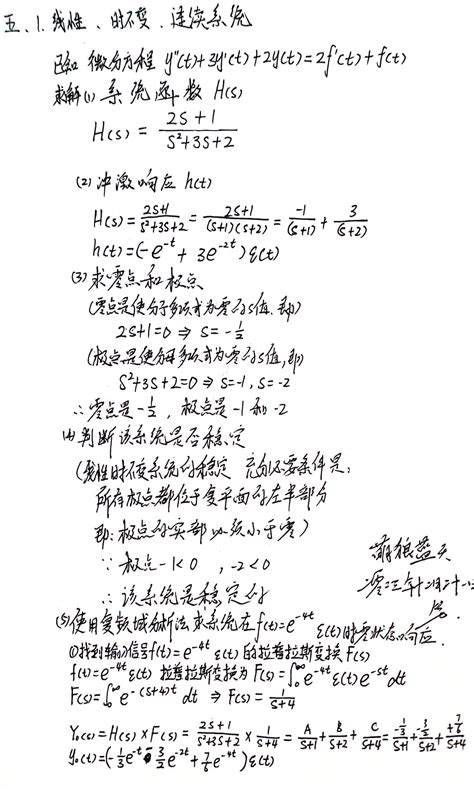 五、1.线性、时不变、连续系统
已知 微分方程 y''(t)+3y'(t)+2y(t)=2f'(t)+f(t)
求解(1)系统函数 H(s)
H(s) = \frac{2S+1}{S²+3S+2}
(2) 冲激响应 h(t)
H(s)=\frac{2S+1}{S²+3S+2}=\frac{2S+1}{(S+1)(S+2)}=\frac{-1}{(S+1)}+\frac{3}{(S+2)}
h(t)=(-e^{-t}+3e^{-2t})ε(t)
(3)求零点和极点
(零点是使分子多项式为零的s值,即)
2S+1=0 ⇒ S=-\frac{1}{2}
(极点是使分母多项式为零的s值,即)
S²+3S+2=0 ⇒ S=-1, S=-2
∴零点是-\frac{1}{2}, 极点是-1和-2
(4)判断该系统是否稳定
(线性时不变系统的稳定 充分必要条件是:
所有极点都位于复平面的左半部分
即:极点的实部必须小于零)
∵极点-1<0 , -2<0
∴该系统是稳定的
萌狼蓝天
(5)使用复频域分析法求系统在f(t)=e^{-4t}ε(t)时零状态响应.
①找到输入信号f(t)=e^{-4t}ε(t)的拉普拉斯变换F(s)
f(t)=e^{-4t}ε(t) 拉普拉斯变换为 F(s)=∫_0^∞ e^{-4t}ε(t)e^{-st}dt
F(s)=∫_0^∞ e^{-(s+4)t}dt ⇒ F(s)=\frac{1}{s+4}
Y_0(s)=H(s)×F(s)=\frac{2S+1}{S²+3S+2}×\frac{1}{S+4}=\frac{A}{S+1}+\frac{B}{S+2}+\frac{C}{S+4}=\frac{-\frac{1}{3}}{S+1}+\frac{-\frac{3}{2}}{S+2}+\frac{+\frac{7}{6}}{S+4}
y_0(t)=(-\frac{1}{3}e^{-t}-\frac{3}{2}e^{-2t}+\frac{7}{6}e^{-4t})ε(t)